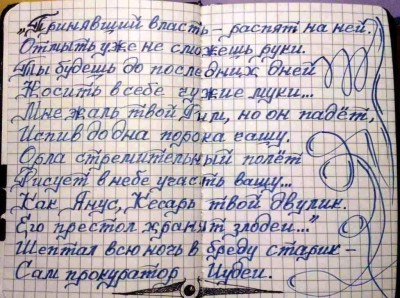 „Принявший власть – распят на ней.
Отмыть уже не сможешь руки.
Ты будешь до последних дней
Носить в себе чужие муки...
Мне жаль твой Рим, но он падёт,
Испив до дна порока чашу.
Орла стремительный полёт
Рисует в небе участь вашу...
Как Янус, Кесарь твой двулик.
Его престол хранят злодеи..."
Шептал всю ночь в бреду старик –
Сам прокуратор Иудеи.